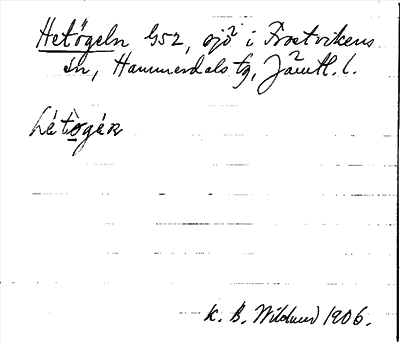 Hetögeln G52, sjö i Frostvikens
sn, Hammerdals tg, Jämtl. l.
hétògén
K. B. Wiklund 1906.